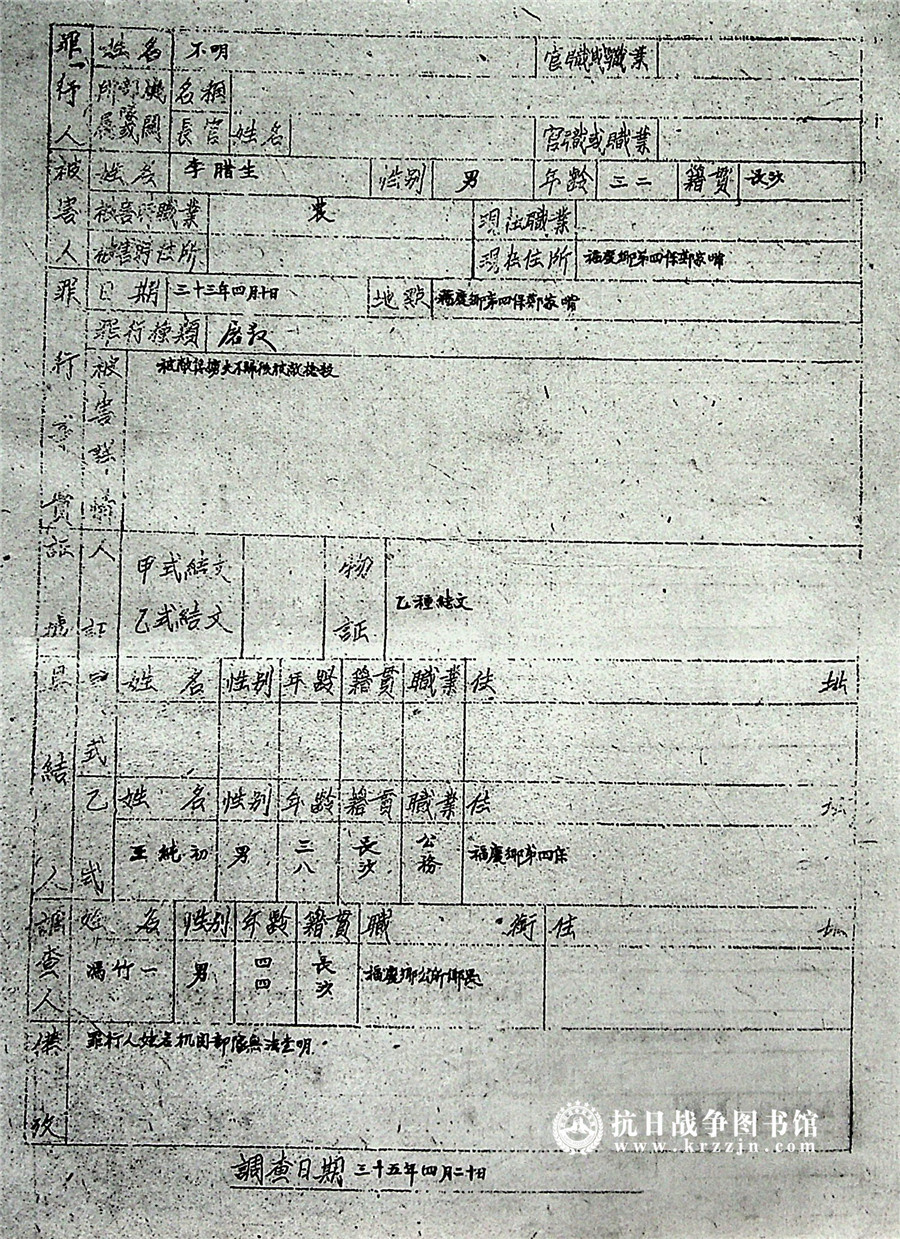 罪行人 姓名 不明 官職或職業
所屬部隊或機關 名稱
長官 姓名 官職或職業
被害人 姓名 李腊生 性别 男 年齡 三二 籍貫 長沙
被害時職業 农 現在職業
被害時住所 現在住所 福慶鄉第四保鄭家嘴
罪行事實 日期 三十三年四月十日 地點 福慶鄉第四保鄭家嘴
罪行種類 屠殺
被害詳情 被敵俘擄夫不歸後被敵槍殺
証據 人証 甲式結文 物証 乙種結文
乙式結文
具結人 甲式 姓名 性别 年齡 籍貫 職業 住址
乙式 姓名 性别 年齡 籍貫 職業 住址
王純初 男 三八 長沙 公務 福慶鄉第四保
調查人 姓名 性别 年齡 籍貫 職銜 住址
馮竹一 男 四四 長沙 福慶鄉公所鄉長
備攷 罪行人姓名机関部隊無法查明
抗日战争图书馆
www.krzzjn.com
調查日期 三十五年四月二十日